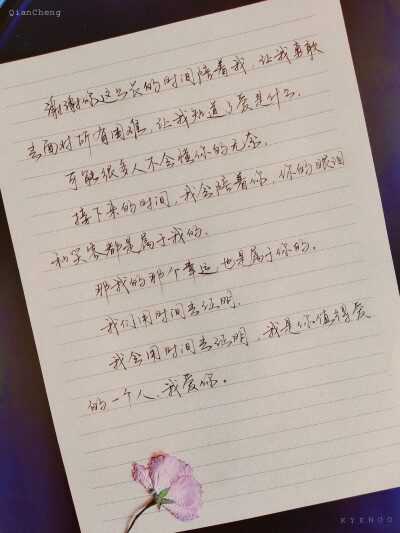 QianCheng
谢谢你这么长的时间陪着我，让我勇敢
去面对所有困难，让我知道了爱是什么。
可能很多人不会懂你的无奈。
接下来的时间，我会陪着你，你的眼泪
和笑容都是属于我的。
那我的那个幸运，也是属于你的。
我们用时间去证明。
我会用时间去证明，我是你值得爱
的一个人，我爱你。
KYENOO